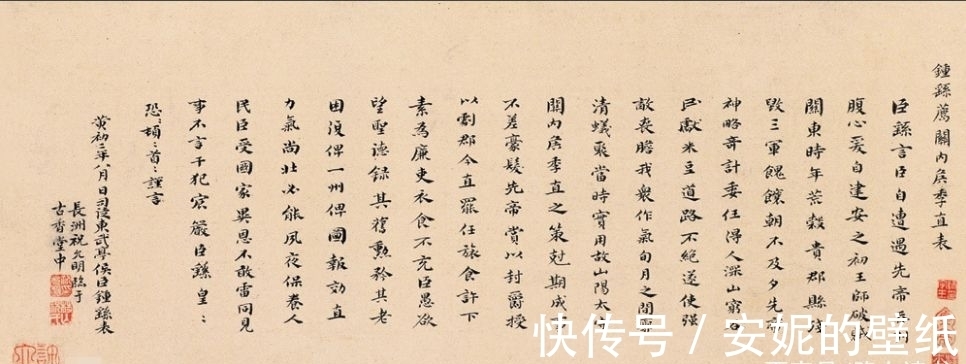 鍾繇薦關內侯季直表
臣繇言臣自遭遇先帝忝列
腹心爰自建安之初王師破賊
關東時年荒穀貴郡縣殘
毀三軍餽饟朝不及夕先
神略奇計委任得人深山窮谷
民獻米豆道路不絕遂使強
敵喪膽我衆作氣旬月之間廓
清蟻聚當時實用故山陽太
關內侯季直之策剋期成
不差豪髮先帝賞以封爵授
以劇郡今直罷任旅食許下
素為廉吏衣食不充臣愚欲
望聖德錄其舊勲矜其老
困復俾一州俾圖報効直
力氣尚壯必能夙夜保養人
民臣受國家異恩不敢雷同見
事不言干犯宸嚴臣繇皇〻
恐〻頓〻首〻謹言
黃初二年八月日司徒東武亭侯臣鍾繇表
長洲祝允明臨于
古香堂中
快传号 / 安妮的壁纸